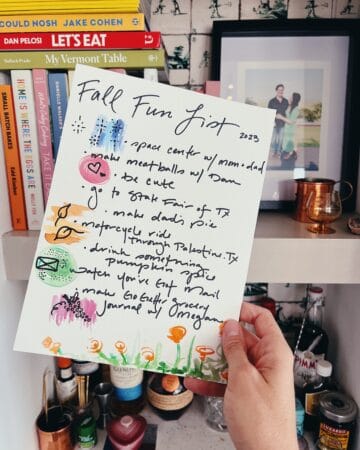 COULD NOSH JAKE COHEN
DAN PELOSI LET'S EAT
My Vermont Table
SMALL BATCH BAKES
HOME IS WHERE THE EGGS ARE
DANIELLE WALKER
Fall Fun List
2023
• space center w/ mom + dad
make meatballs w/ Dan
• be cute
• go to State Fair of TX
• make dad's pie
motorcycle ride
through Palestine, TX
• drink something
pumpkin spice
watch You've Got Mail
• make Go Getter grocery
journal w/ Meghann